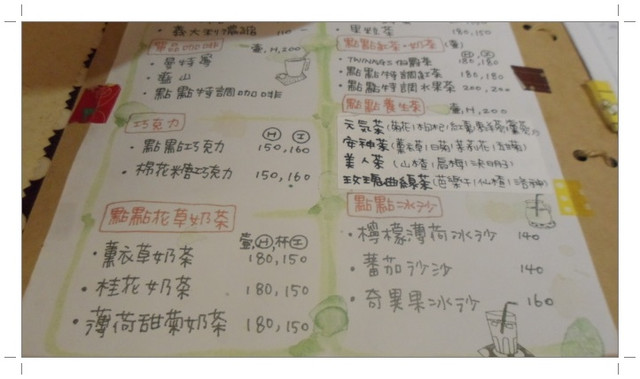 義大利濃縮 110
單品咖啡 壺,H,200
曼特寧
藍山
點點特調咖啡
巧克力 H I
點點巧克力 150,160
棉花糖巧克力 150,160
點點花草奶茶
壺,H,杯I
薰衣草奶茶 180,150
桂花奶茶 180,150
薄荷甜菊奶茶 180,150
黑粒茶 180,150
點點紅茶·奶茶(壺) H I
THINGS伯爵茶 180,180
點點特調紅茶 180,180
點點特調水果茶 200,200
點點養生茶 壺,H,200
安神茶
美人茶(山楂/烏梅/決明子)
玫瑰曲線茶(芭樂干/仙楂/洛神)
點點冰沙
檸檬薄荷冰沙 140
蕃茄沙沙 140
奇異果冰沙 160